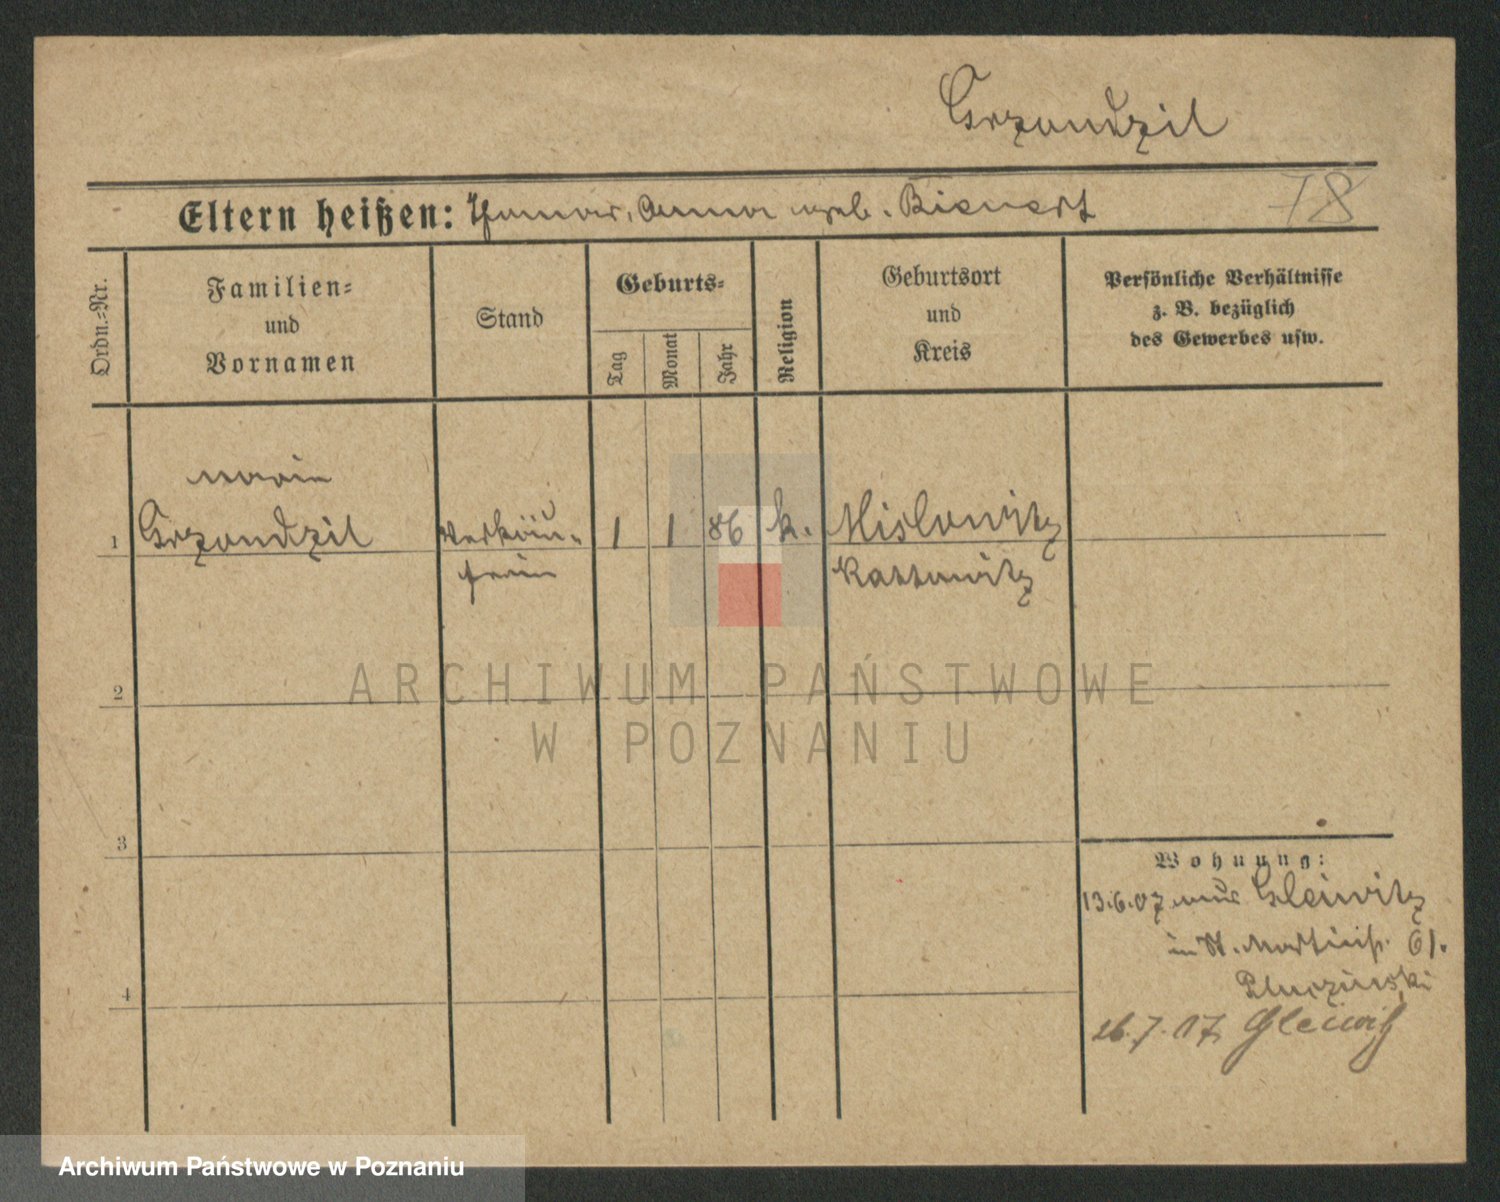 Grzondzil
78
Eltern heißen: Thomas, Anna geb. Bienert
Ordn.-Nr.
Familien-
und
Vornamen
Stand
Geburts-
Tag
Monat
Jahr
Religion
Geburtsort
und
Kreis
Persönliche Verhältnisse
z. B. bezüglich
des Gewerbes usw.
Marie
1 Grzondzil Verkäu- 1 1 86 k. Mislowitz
ferin Kattowitz
2
3
4
Wohnung:
13.6.07 aus Gleiwitz
in St. Martinstr. 61.
26.7.07 Gleiwitz
ARCHIWUM PAŃSTWOWE
W POZNANIU
Archiwum Państwowe w Poznaniu